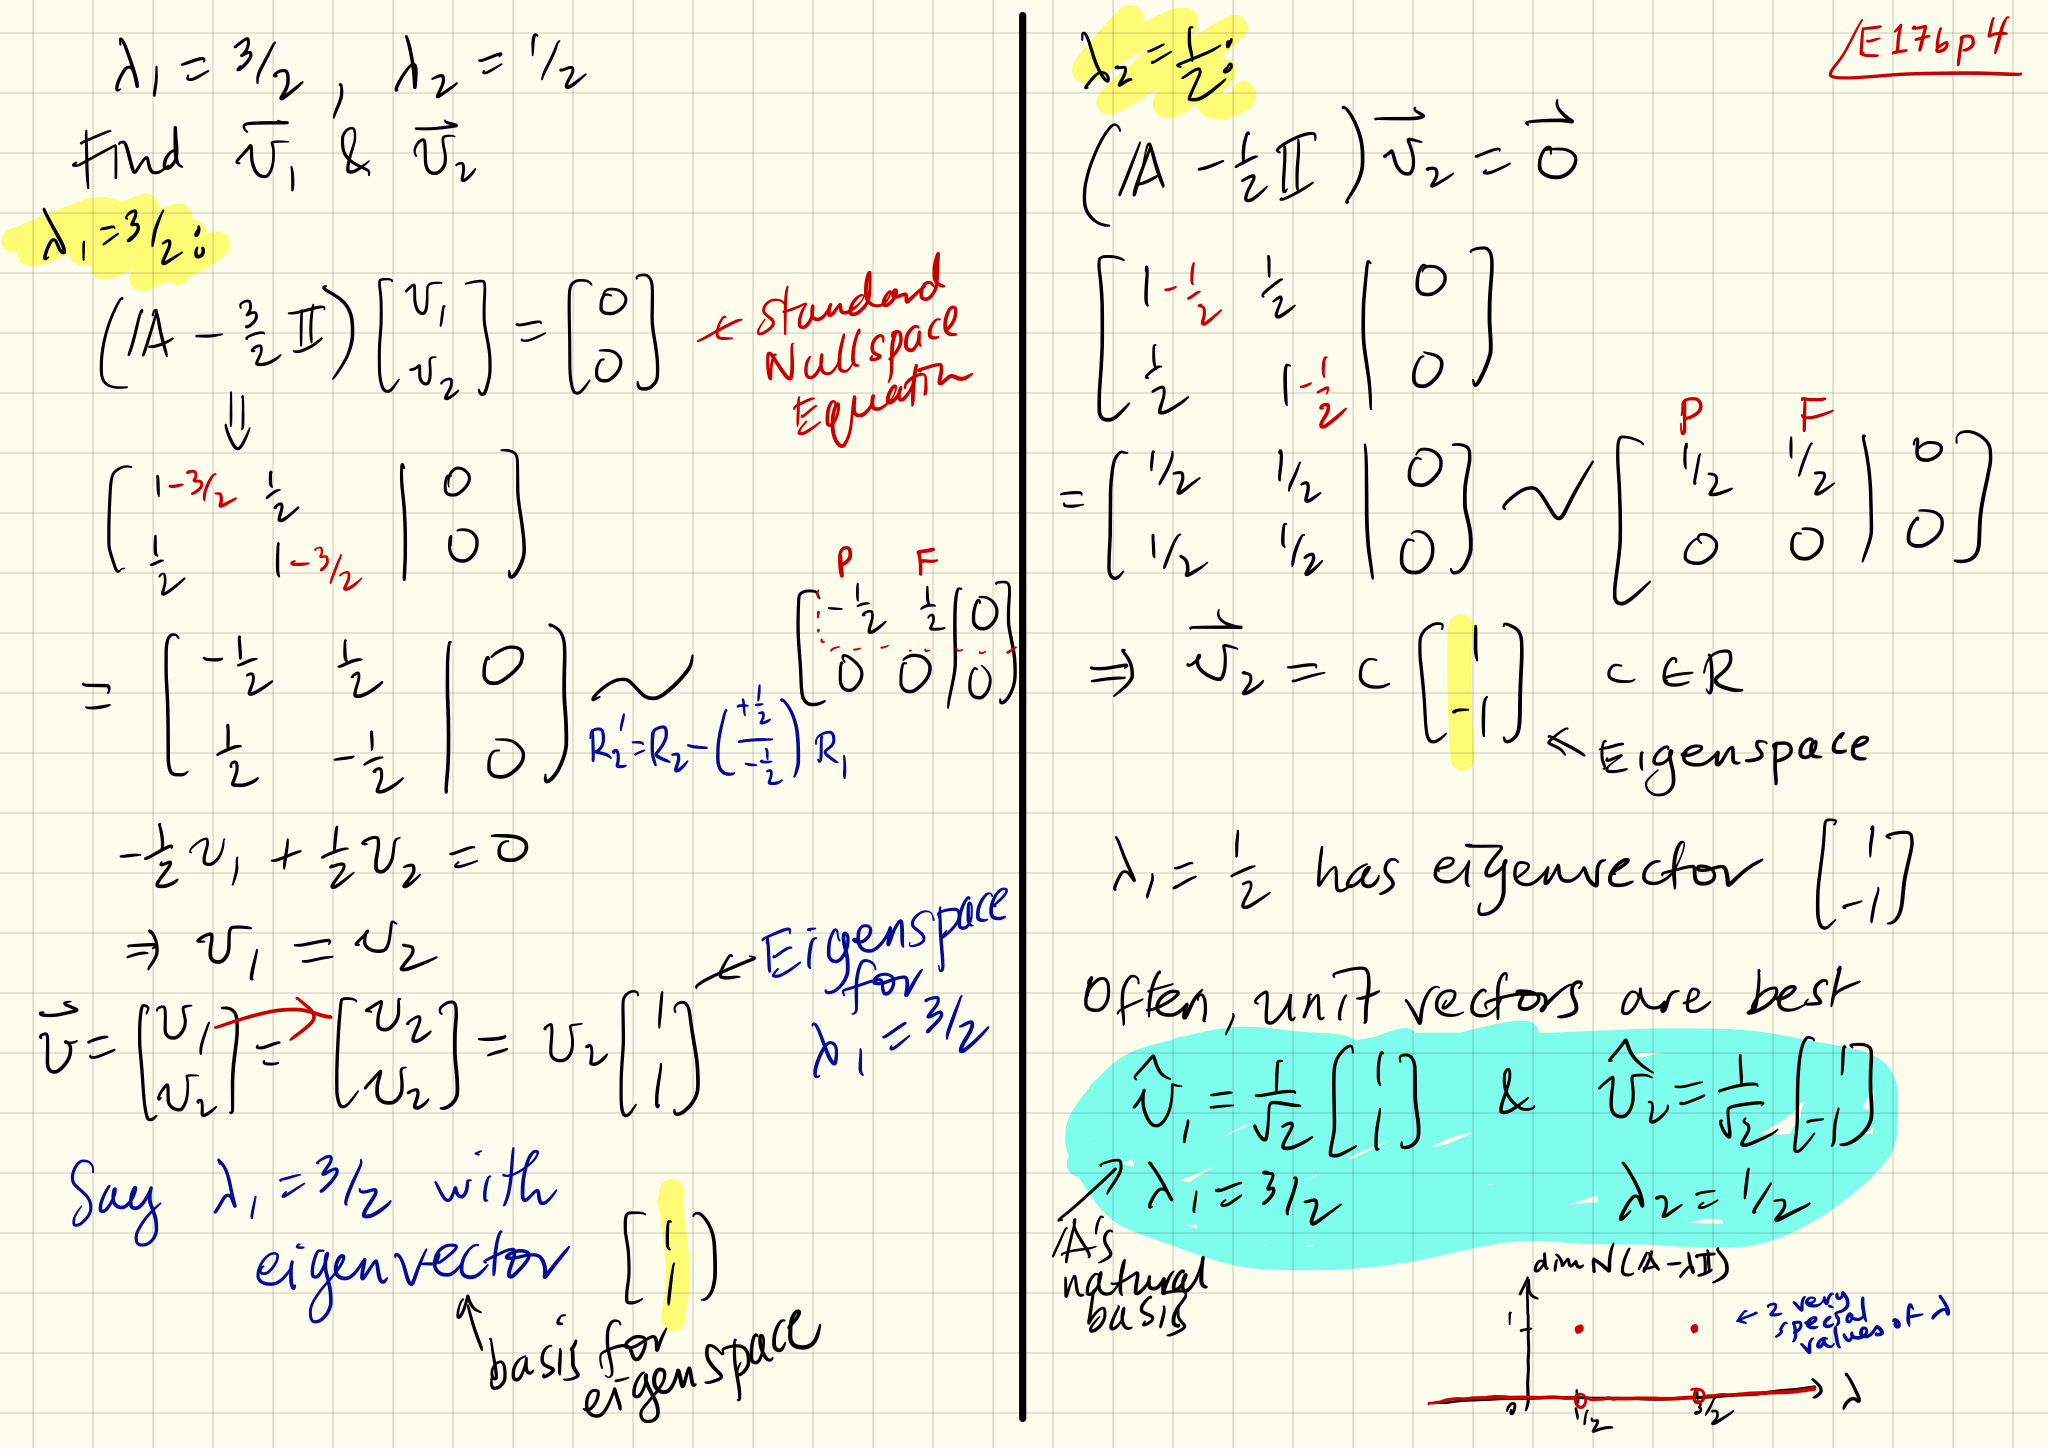 λ₁ = 3/2 , λ₂ = 1/2
Find v⃗₁ & v⃗₂
λ₁ = 3/2 :
(𝔸 - 3/2 𝕀) [v₁ v₂] = [0 0] ← Standard Nullspace Equation
⇓
[1 - 3/2 1/2 | 0]
[1/2 1 - 3/2 | 0]
P F
= [-1/2 1/2 | 0] ~ [-1/2 1/2 | 0]
[1/2 -1/2 | 0] [0 0 | 0]
R₂' = R₂ - (+1/2 / -1/2) R₁
-1/2 v₁ + 1/2 v₂ = 0
⇒ v₁ = v₂
v⃗ = [v₁ v₂] = [v₂ v₂] = v₂ [1 1] ← Eigenspace for λ₁ = 3/2
Say λ₁ = 3/2 with
eigenvector [1 1]
↑ basis for
eigenspace
E176p4
λ₂ = 1/2 :
(𝔸 - 1/2 𝕀) v⃗₂ = 0⃗
[1 - 1/2 1/2 | 0]
[1/2 1 - 1/2 | 0]
P F
= [1/2 1/2 | 0] ~ [1/2 1/2 | 0]
[1/2 1/2 | 0] [0 0 | 0]
⇒ v⃗₂ = c [1 -1] c ∈ R
← Eigenspace
λ₁ = 1/2 has eigenvector [1 -1]
Often, unit vectors are best
v̂₁ = 1/√2 [1 1] & v̂₂ = 1/√2 [1 -1]
λ₁ = 3/2 λ₂ = 1/2
𝔸's
natural
basis
dim N(𝔸 - λ𝕀)
1
← 2 very
special
values of λ
0 1/2 3/2 λ